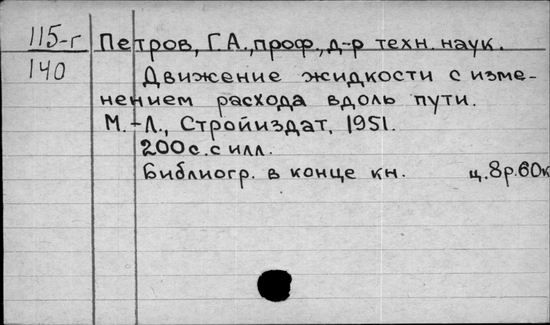 115-г
140
Петров, Г.А., проф., д-р техн. наук.
Движение жидкости с изме-
нением расхода вдоль пути.
М.-Л., Стройиздат, 1951.
200 с. с илл.
Библиогр. в конце кн. ц. 8р. 60к